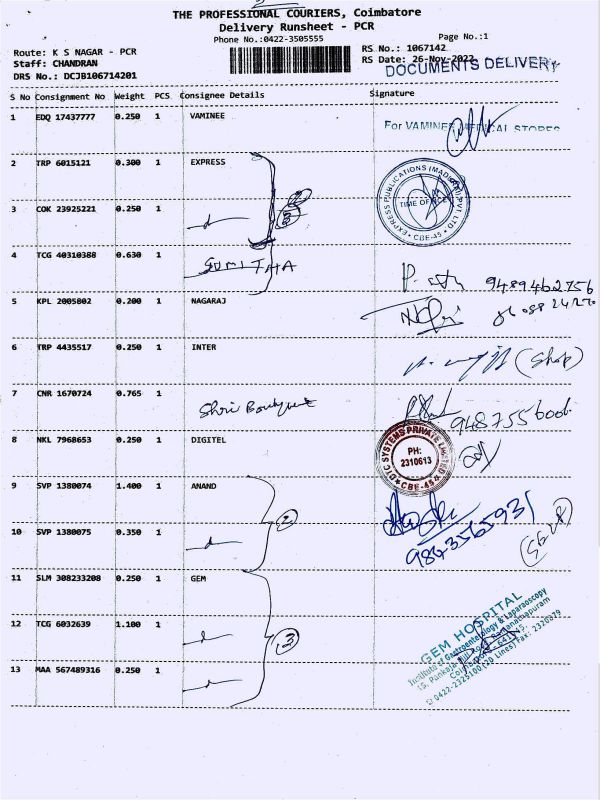 THE PROFESSIONAL COURIERS, Coimbatore
Delivery Runsheet - PCR
Phone No.:0422-3505555
Page No.:1
Route: K S NAGAR - PCR
RS No.: 1067142
Staff: CHANDRAN
RS Date: 26-Nov-2022
DRS No.: DCJB106714201
DOCUMENTS DELIVERY
S No Consignment No Weight PCS Consignee Details Signature
1 EDQ 17437777 0.250 1 VAMINEE
For VAMINEE MEDICAL STORES
2 TRP 6015121 0.300 1 EXPRESS
EXPRESS PUBLICATIONS (MADURAI) PVT LTD
TIME OFFICE
CBE-45
3 COK 23925221 0.250 1
4 TCG 40310388 0.630 1 SUMITHA
9489462756
5 KPL 2005802 0.200 1 NAGARAJ
6 TRP 4435517 0.250 1 INTER
(Shop)
7 CNR 1670724 0.765 1 Shri Boutique
9487556006
8 NKL 7968653 0.250 1 DIGITEL
SYSTEMS PRIVATE LIMITED
PH:
2310613
CBE-45
9 SVP 1380074 1.400 1 ANAND
2
10 SVP 1380075 0.350 1
9843565931
11 SLM 308233208 0.250 1 GEM
12 TCG 6032639 1.100 1
3
GEM HOSPITAL
Institute of Gastroenterology & Laparoscopy
15, Pankaja Mill Road, Ramanathapuram
Coimbatore - 641 045.
0422-2325100 (20 Lines) Fax: 2320879
13 MAA 567489316 0.250 1